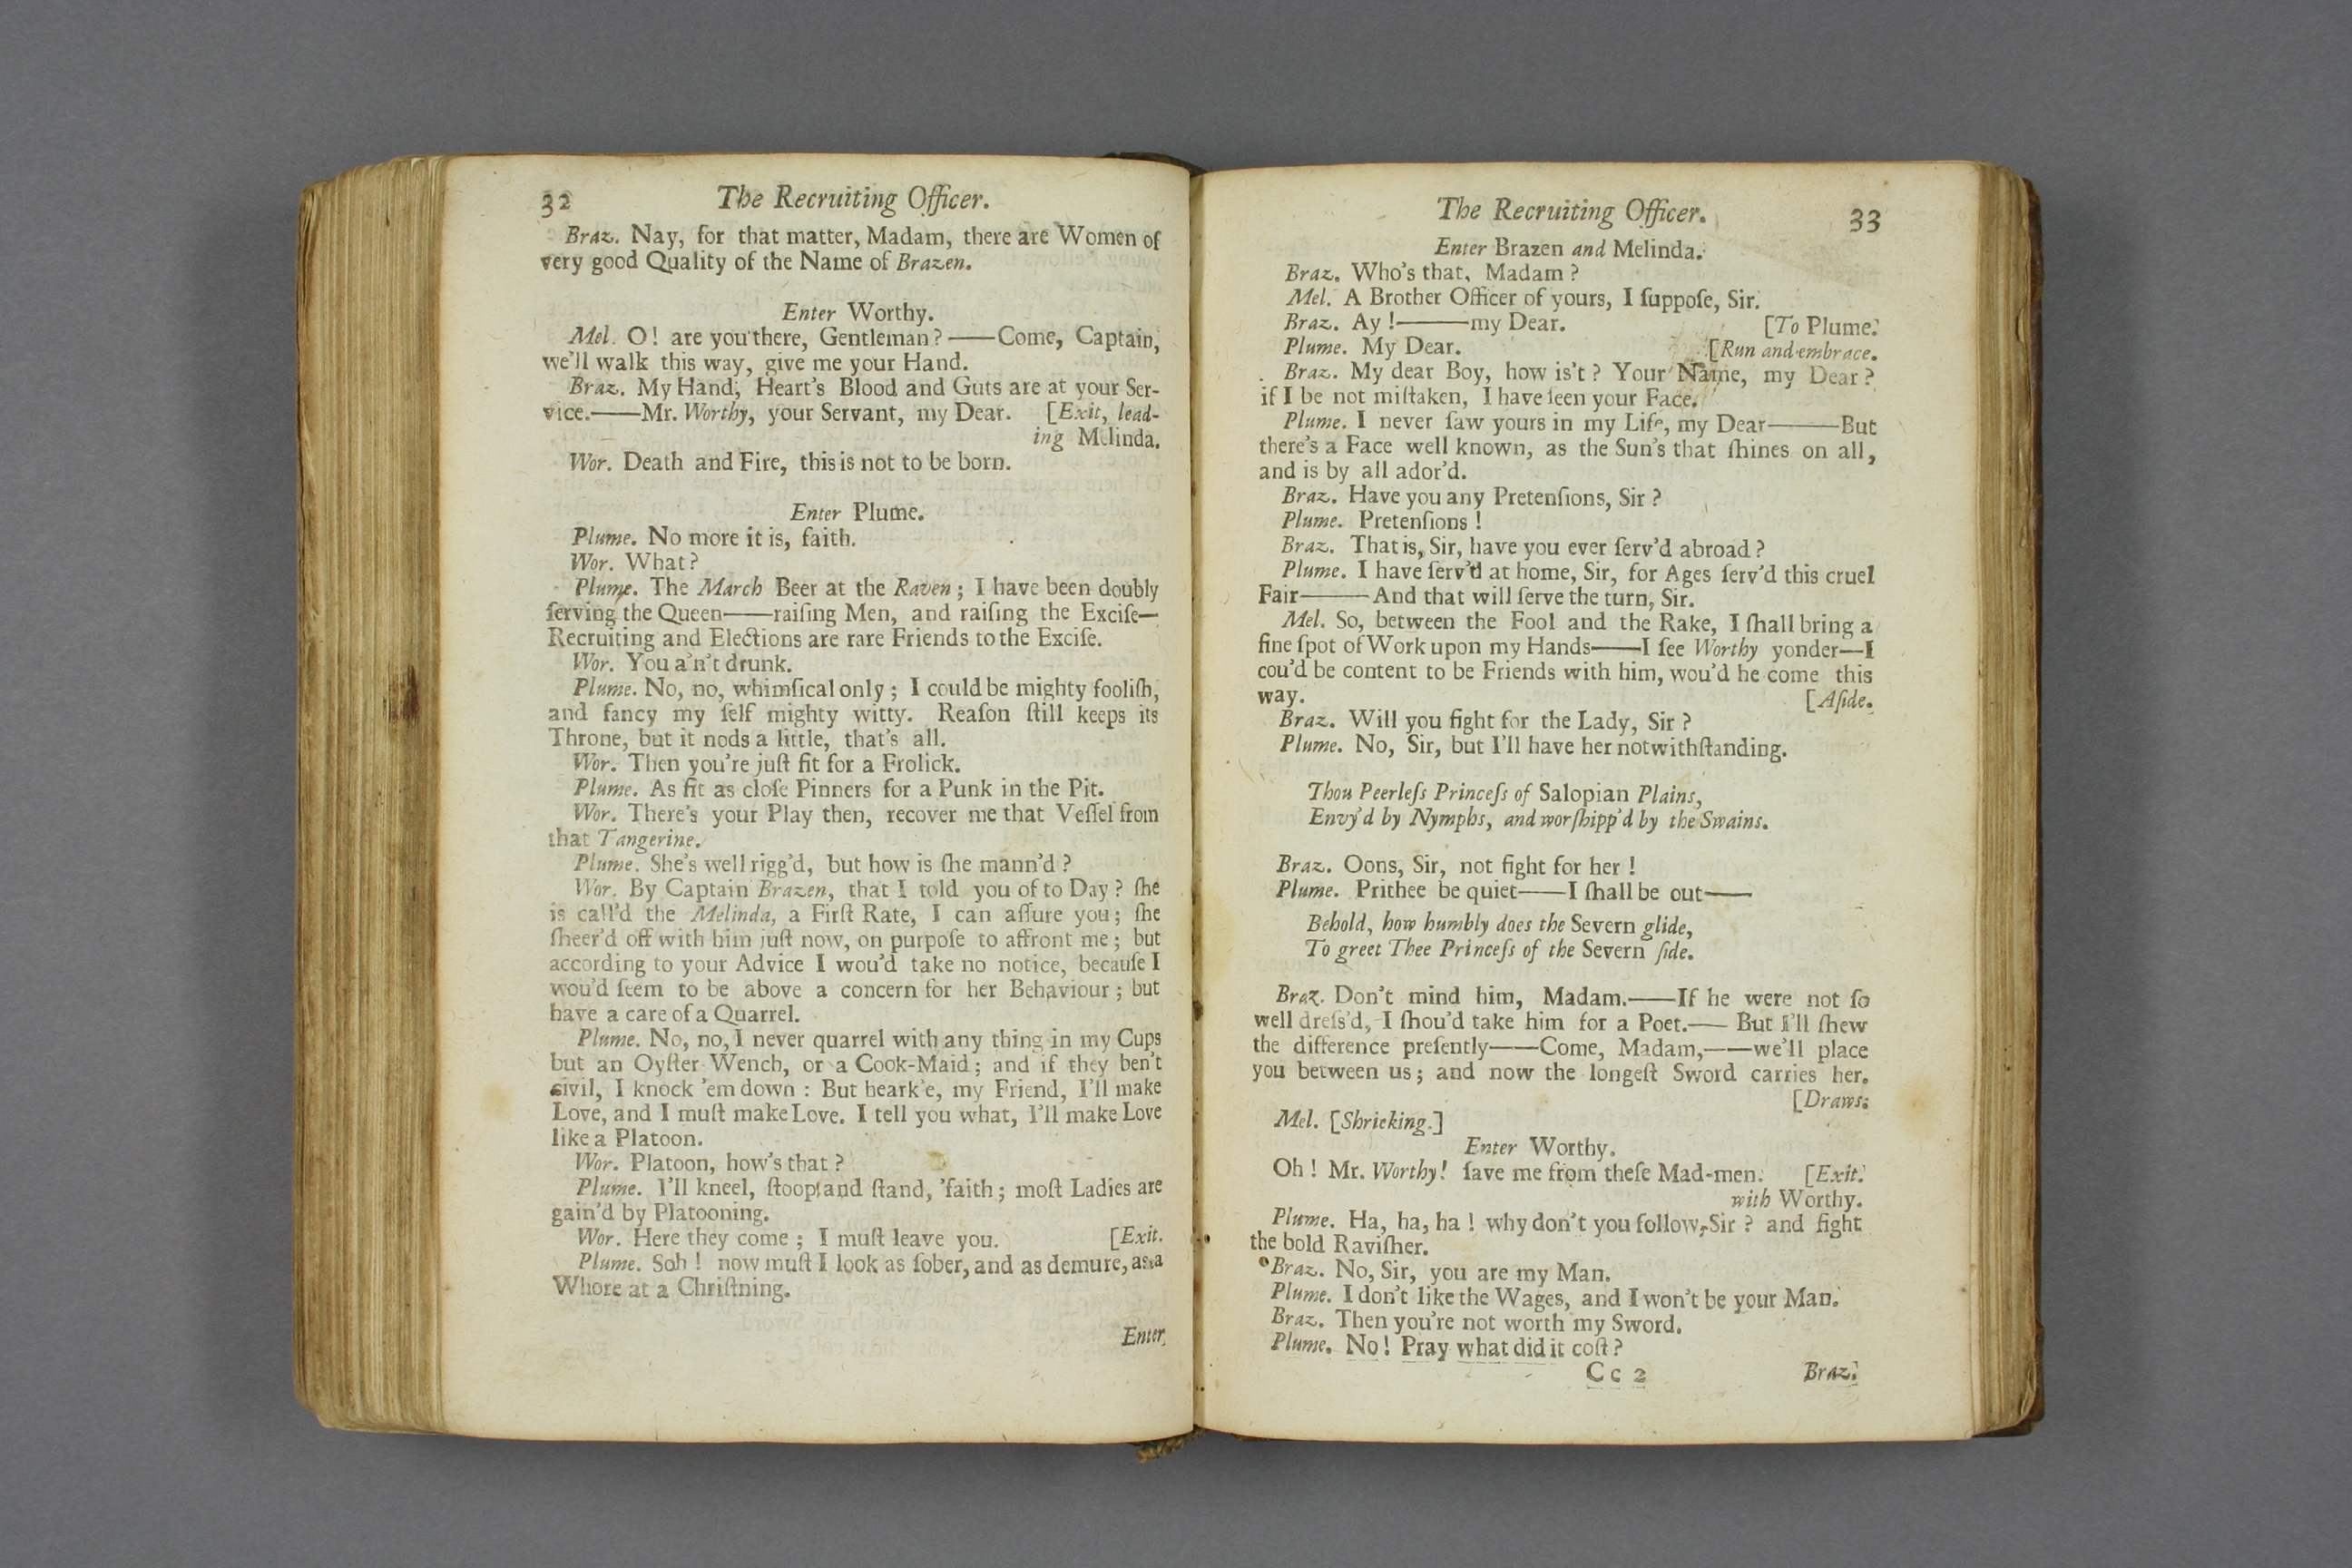 32 The Recruiting Officer.
Braz. Nay, for that matter, Madam, there are Women of
very good Quality of the Name of Brazen.
Enter Worthy.
Mel. O! are you there, Gentleman?——Come, Captain,
we'll walk this way, give me your Hand.
Braz. My Hand, Heart's Blood and Guts are at your Ser-
vice.——Mr. Worthy, your Servant, my Dear. [Exit, lead-
ing Melinda.
Wor. Death and Fire, this is not to be born.
Enter Plume.
Plume. No more it is, faith.
Wor. What?
Plume. The March Beer at the Raven; I have been doubly
ſerving the Queen——raiſing Men, and raiſing the Exciſe—
Recruiting and Elections are rare Friends to the Exciſe.
Wor. You a'n't drunk.
Plume. No, no, whimſical only; I could be mighty fooliſh,
and fancy my ſelf mighty witty. Reaſon ſtill keeps its
Throne, but it nods a little, that's all.
Wor. Then you're juſt fit for a Frolick.
Plume. As fit as cloſe Pinners for a Punk in the Pit.
Wor. There's your Play then, recover me that Veſſel from
that Tangerine.
Plume. She's well rigg'd, but how is ſhe mann'd?
Wor. By Captain Brazen, that I told you of to Day? ſhe
is call'd the Melinda, a Firſt Rate, I can aſſure you; ſhe
ſheer'd off with him juſt now, on purpoſe to affront me; but
according to your Advice I wou'd take no notice, becauſe I
wou'd ſeem to be above a concern for her Behaviour; but
have a care of a Quarrel.
Plume. No, no, I never quarrel with any thing in my Cups
but an Oyſter Wench, or a Cook-Maid; and if they ben't
civil, I knock 'em down: But heark'e, my Friend, I'll make
Love, and I muſt make Love. I tell you what, I'll make Love
like a Platoon.
Wor. Platoon, how's that?
Plume. I'll kneel, ſtoop and ſtand, 'faith; moſt Ladies are
gain'd by Platooning.
Wor. Here they come; I muſt leave you. [Exit.
Plume. Soh! now muſt I look as ſober, and as demure, as a
Whore at a Chriſtning.
Enter
The Recruiting Officer. 33
Enter Brazen and Melinda.
Braz. Who's that, Madam?
Mel. A Brother Officer of yours, I ſuppoſe, Sir.
Braz. Ay!——my Dear. [To Plume.
Plume. My Dear. [Run and embrace.
Braz. My dear Boy, how is't? Your Name, my Dear?
if I be not miſtaken, I have ſeen your Face.
Plume. I never ſaw yours in my Life, my Dear——But
there's a Face well known, as the Sun's that ſhines on all,
and is by all ador'd.
Braz. Have you any Pretenſions, Sir?
Plume. Pretenſions!
Braz. That is, Sir, have you ever ſerv'd abroad?
Plume. I have ſerv'd at home, Sir, for Ages ſerv'd this cruel
Fair——And that will ſerve the turn, Sir.
Mel. So, between the Fool and the Rake, I ſhall bring a
fine ſpot of Work upon my Hands——I ſee Worthy yonder—I
cou'd be content to be Friends with him, wou'd he come this
way. [Aſide.
Braz. Will you fight for the Lady, Sir?
Plume. No, Sir, but I'll have her notwithſtanding.
Thou Peerleſs Princeſs of Salopian Plains,
Envy'd by Nymphs, and worſhipp'd by the Swains.
Braz. Oons, Sir, not fight for her!
Plume. Prithee be quiet——I ſhall be out——
Behold, how humbly does the Severn glide,
To greet Thee Princeſs of the Severn ſide.
Braz. Don't mind him, Madam.——If he were not ſo
well dreſs'd, I ſhou'd take him for a Poet.—— But I'll ſhew
the difference preſently——Come, Madam,——we'll place
you between us; and now the longeſt Sword carries her.
[Draws.
Mel. [Shrieking.]
Enter Worthy.
Oh! Mr. Worthy! ſave me from theſe Mad-men. [Exit.
with Worthy.
Plume. Ha, ha, ha! why don't you follow, Sir? and fight
the bold Raviſher.
Braz. No, Sir, you are my Man.
Plume. I don't like the Wages, and I won't be your Man.
Braz. Then you're not worth my Sword.
Plume. No! Pray what did it coſt?
Cc 2 Braz.